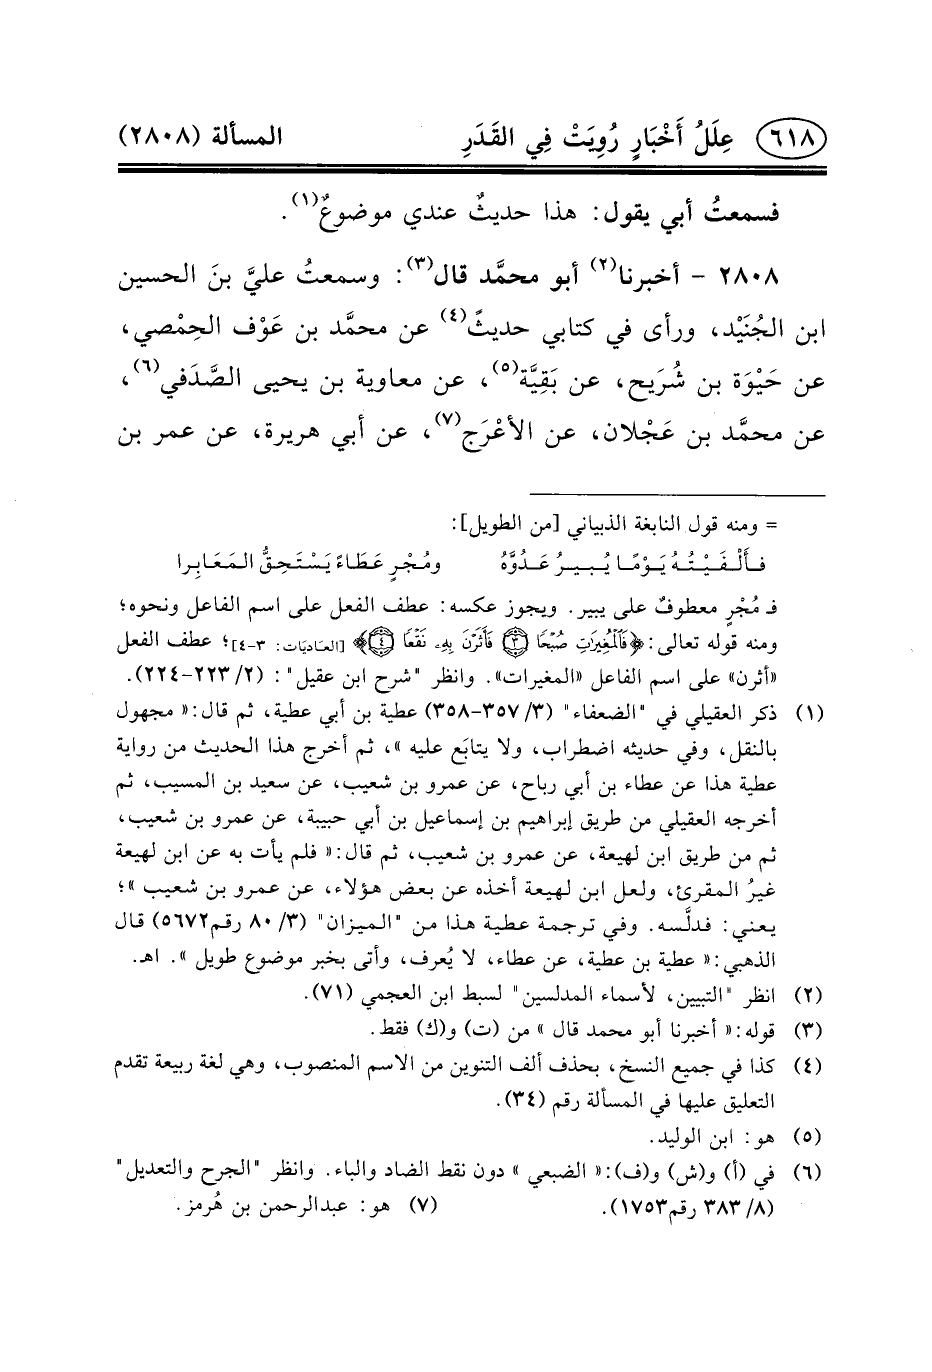 ٦١٨ عِلَلُ أَخْبَارٍ رُوِيَتْ فِي القَدَرِ المسألة (٢٨٠٨)
فسمعتُ أبي يقول: هذا حديثٌ عندي موضوعٌ(١).
٢٨٠٨ - أخبرنا(٢) أبو محمَّد قال(٣): وسمعتُ عليَّ بنَ الحسين
ابن الجُنَيْد، ورأى في كتابي حديثً(٤) عن محمَّد بن عَوْف الحِمْصي،
عن حَيْوَة بن شُرَيح، عن بَقِيَّة(٥)، عن معاوية بن يحيى الصَّدَفي(٦)،
عن محمَّد بن عَجْلان، عن الأعْرَج(٧)، عن أبي هريرة، عن عمر بن
= ومنه قول النابغة الذبياني [من الطويل]:
فَأَلْفَيْتُهُ يَوْمًا يُبِيرُ عَدُوَّهُ ومُجْرٍ عَطَاءً يَسْتَحِقُّ المَعَابِرا
فـ مُجْرٍ معطوفٌ على يبير. ويجوز عكسه: عطف الفعل على اسم الفاعل ونحوه؛
ومنه قوله تعالى: ﴿فَالْمُغِيرَاتِ صُبْحًا ۝٣ فَأَثَرْنَ بِهِ نَقْعًا ۝٤﴾ [العَاديَات: ٣-٤]؛ عطف الفعل
«أثرن» على اسم الفاعل «المغيرات». وانظر "شرح ابن عقيل": (٢/ ٢٢٣-٢٢٤).
(١) ذكر العقيلي في "الضعفاء" (٣/ ٣٥٧-٣٥٨) عطية بن أبي عطية، ثم قال: « مجهول
بالنقل، وفي حديثه اضطراب، ولا يتابَع عليه »، ثم أخرج هذا الحديث من رواية
عطية هذا عن عطاء بن أبي رباح، عن عمرو بن شعيب، عن سعيد بن المسيب، ثم
أخرجه العقيلي من طريق إبراهيم بن إسماعيل بن أبي حبيبة، عن عمرو بن شعيب،
ثم من طريق ابن لهيعة، عن عمرو بن شعيب، ثم قال: « فلم يأت به عن ابن لهيعة
غيرُ المقرئ، ولعل ابن لهيعة أخذه عن بعض هؤلاء، عن عمرو بن شعيب »؛
يعني: فدلَّسه. وفي ترجمة عطية هذا من "الميزان" (٣/ ٨٠ رقم٥٦٧٢) قال
الذهبي: « عطية بن عطية، عن عطاء، لا يُعرف، وأتى بخبر موضوع طويل ». اهـ.
(٢) انظر "التبيين، لأسماء المدلسين" لسبط ابن العجمي (٧١).
(٣) قوله: « أخبرنا أبو محمد قال » من (ت) و(ك) فقط.
(٤) كذا في جميع النسخ، بحذف ألف التنوين من الاسم المنصوب، وهي لغة ربيعة تقدم
التعليق عليها في المسألة رقم (٣٤).
(٥) هو: ابن الوليد.
(٦) في (أ) و(ش) و(ف): « الضبعي » دون نقط الضاد والباء. وانظر "الجرح والتعديل"
(٨/ ٣٨٣ رقم١٧٥٣). (٧) هو: عبدالرحمن بن هُرمز.